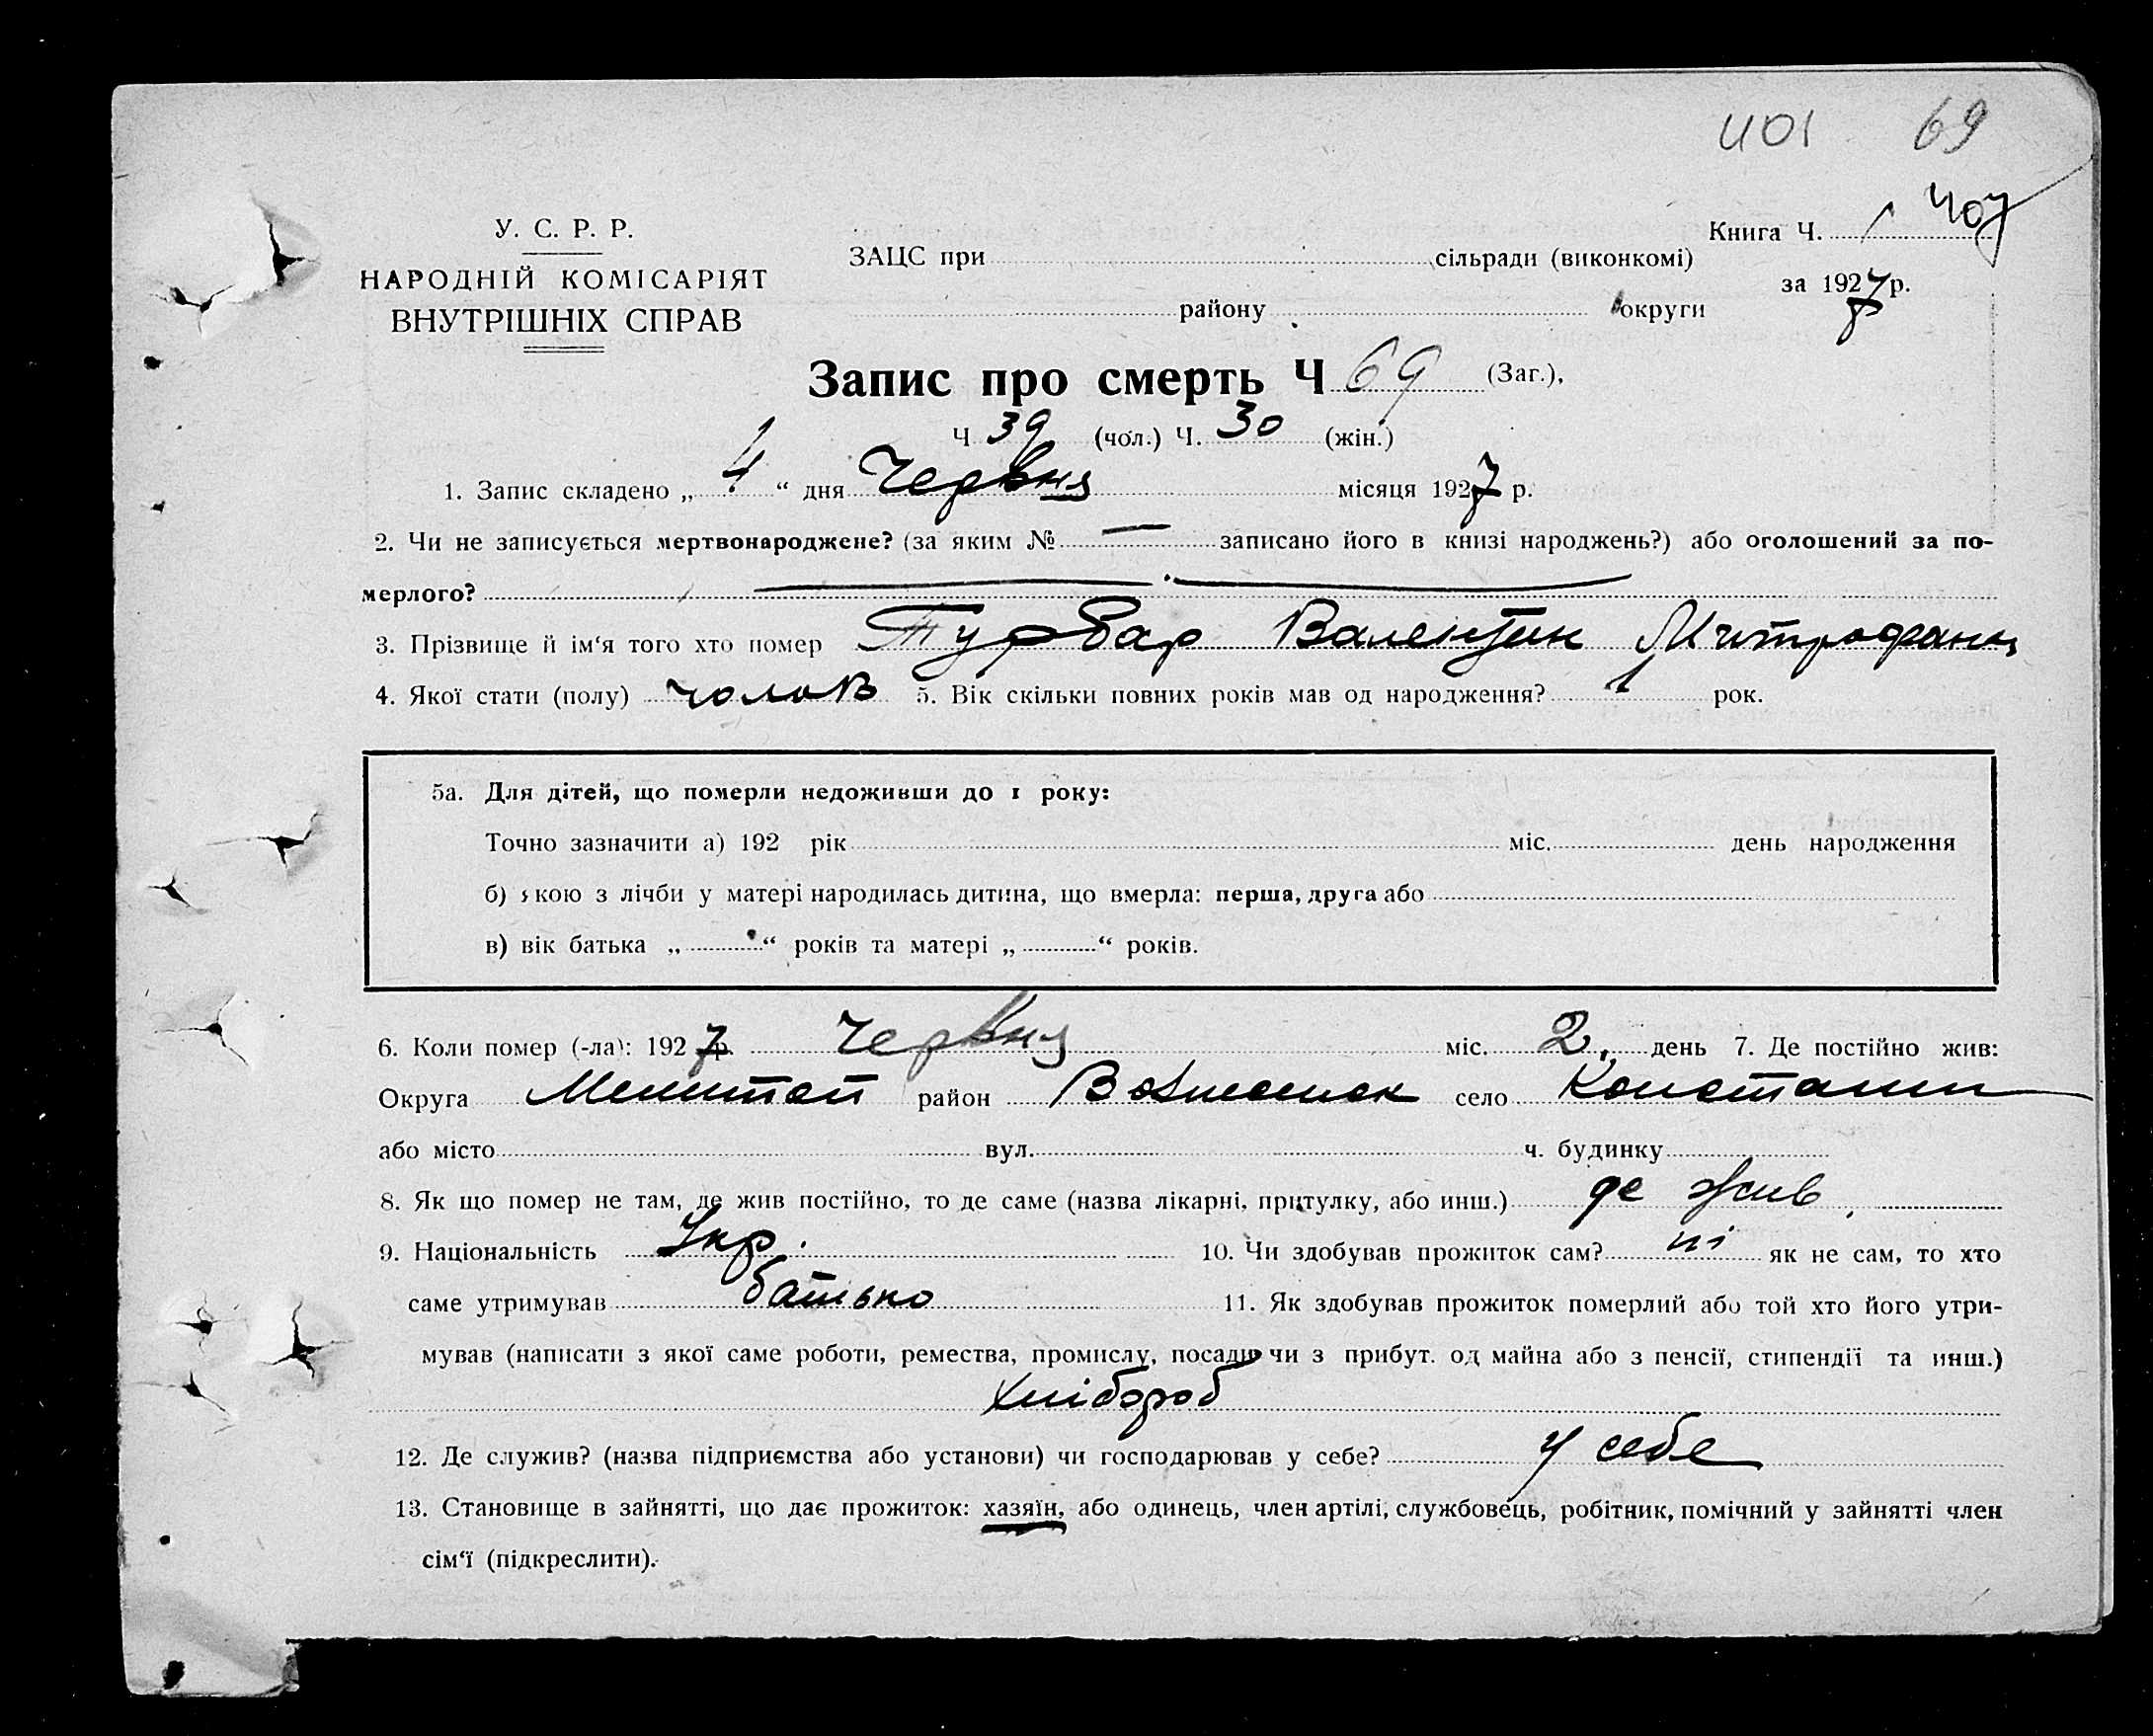 401 69
У. С. Р. Р.
НАРОДНІЙ КОМІСАРІЯТ
ВНУТРІШНІХ СПРАВ
ЗАЦС при сільради (виконкомі)
району округи
Книга Ч. 1 407
за 1927 р.
Запис про смерть Ч 69 (Заг.),
Ч 39 (чол.) Ч. 30 (жін.)
1. Запис складено „ 4 “ дня Червня місяця 1927 р.
2. Чи не записується мертвонароджене? (за яким № — записано його в книзі народжень?) або оголошений за по-
мерлого?
3. Прізвище й ім‘я того хто помер Турбар Валентин Митрофанов
4. Якої стати (полу) чолов 5. Вік скільки повних років мав од народження? 1 рок.
5а. Для дітей, що померли недоживши до 1 року:
Точно зазначити а) 192 рік міс. день народження
б) якою з лічби у матері народилась дитина, що вмерла: перша, друга або
в) вік батька „ “ років та матері „ “ років.
6. Коли помер (-ла): 1927 р. Червня міс. 2 день 7. Де постійно жив:
Округа Мелитоп район Вознесенск село Констант
або місто вул. ч. будинку
8. Як що помер не там, де жив постійно, то де саме (назва лікарні, притулку, або инш.) де жив
9. Національність Укр. 10. Чи здобував прожиток сам? ні як не сам, то хто
саме утримував батько 11. Як здобував прожиток померлий або той хто його утри-
мував (написати з якої саме роботи, ремества, промислу, посади чи з прибут. од майна або з пенсії, стипендії та инш.)
Хлібороб
12. Де служив? (назва підприємства або установи) чи господарював у себе? у себе
13. Становище в зайнятті, що дає прожиток: хазяїн, або одинець, член артілі, службовець, робітник, помічний у зайнятті член
сім‘ї (підкреслити).